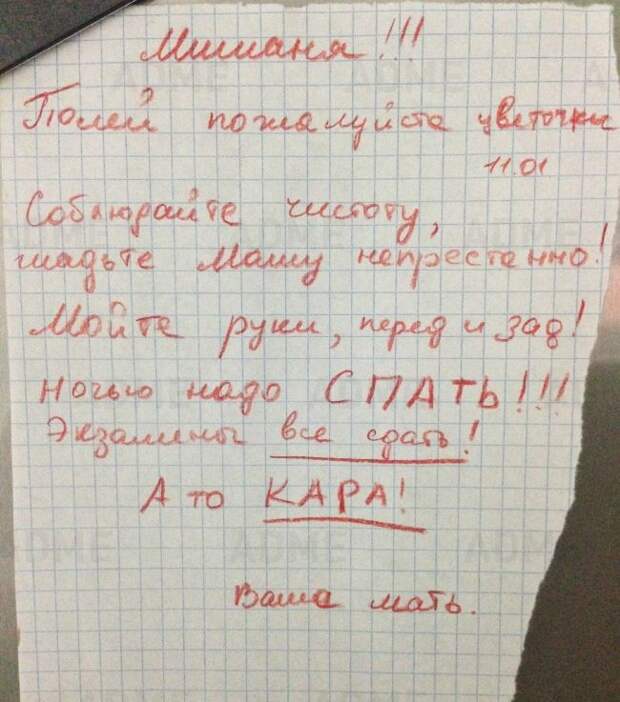 Мишаня!!!
Полей пожалуйста цветочки
11.01
Соблюдайте чистоту,
гладьте Машу непрестанно!
Мойте руки, перед и зад!
Ночью надо СПАТЬ!!!
Экзамены все сдать!
А то КАРА!
Ваша мать.
ADME
ADME
ADME
ADME